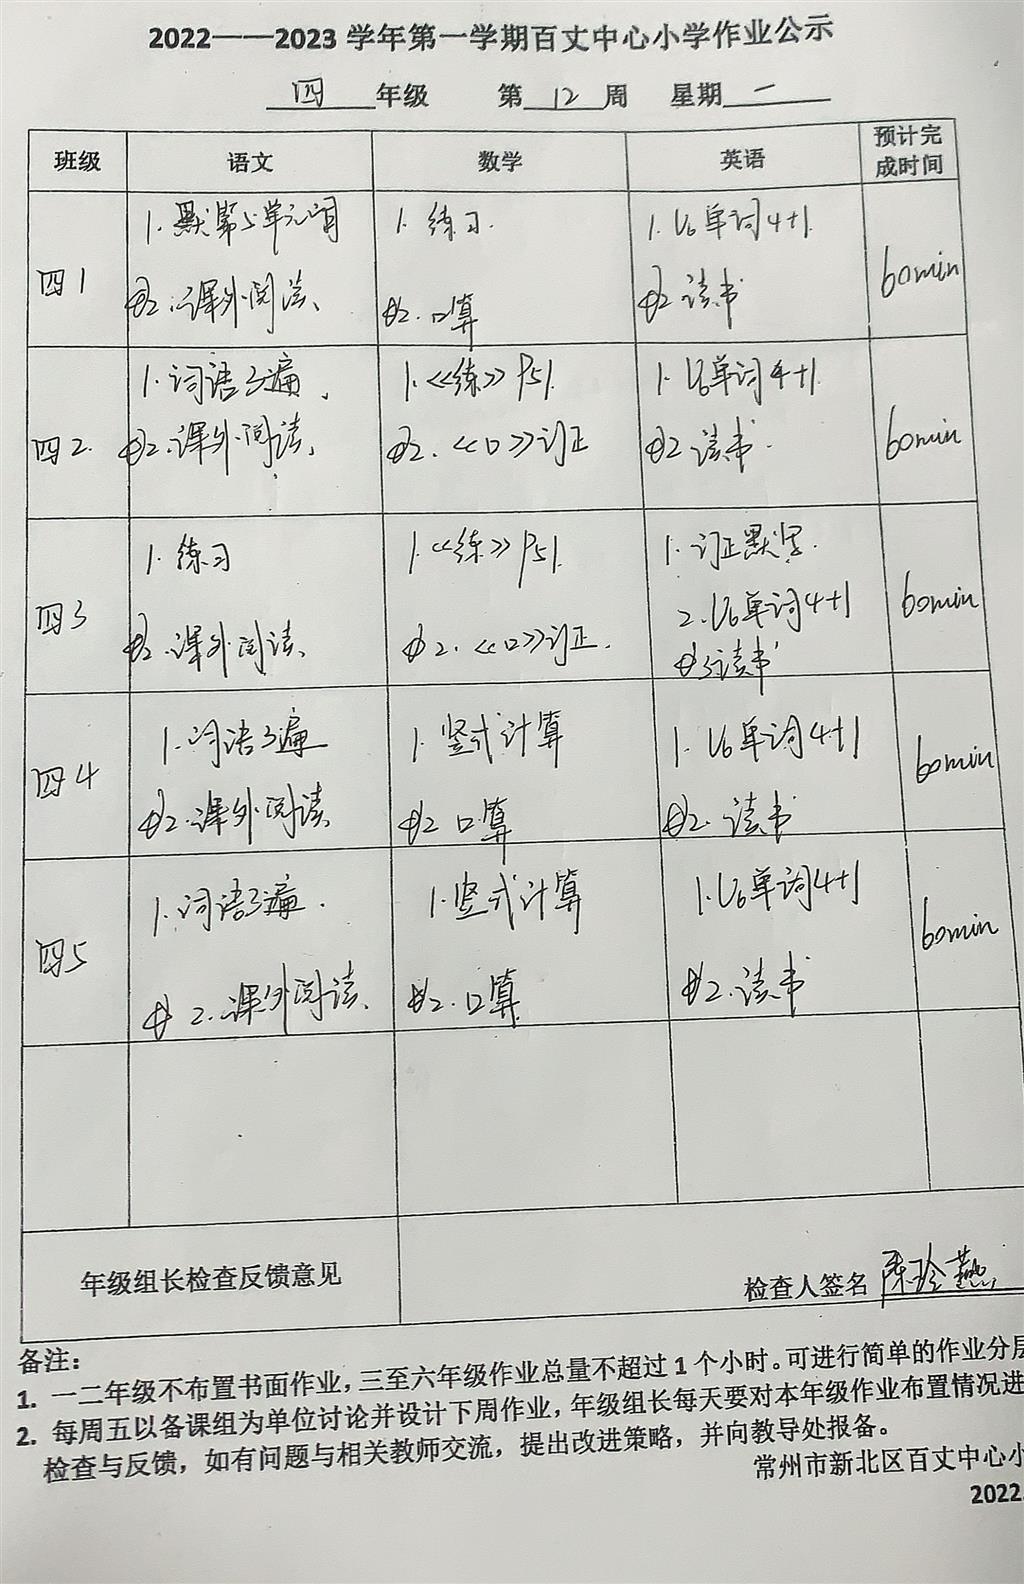 2022——2023学年第一学期百丈中心小学作业公示
四年级 第12周 星期一
班级 语文 数学 英语 预计完成时间
四1
1.默第5单元词
②2.课外阅读、
1.练习.
②2.口算
1.U6单词4+1
②2读书
60min
四2.
1.词语3遍.
②2.课外阅读、
1.《练》P51.
②2.《口》订正
1.U6单词4+1
②2读书.
60min
四3
1.练习
②2.课外阅读、
1.《练》P51.
②2.《口》订正.
1.订正默写.
2.U6单词4+1
②3读书
60min
四4
1.词语3遍
②2.课外阅读、
1.竖式计算
②2口算
1.U6单词4+1
②2.读书
60min
四5
1.词语3遍.
②2.课外阅读、
1.竖式计算
②2.口算
1.U6单词4+1
②2.读书
60min
年级组长检查反馈意见
检查人签名
备注:
1. 一二年级不布置书面作业,三至六年级作业总量不超过1个小时。可进行简单的作业分层
2. 每周五以备课组为单位讨论并设计下周作业,年级组长每天要对本年级作业布置情况进
检查与反馈,如有问题与相关教师交流,提出改进策略,并向教导处报备。
常州市新北区百丈中心小
2022.